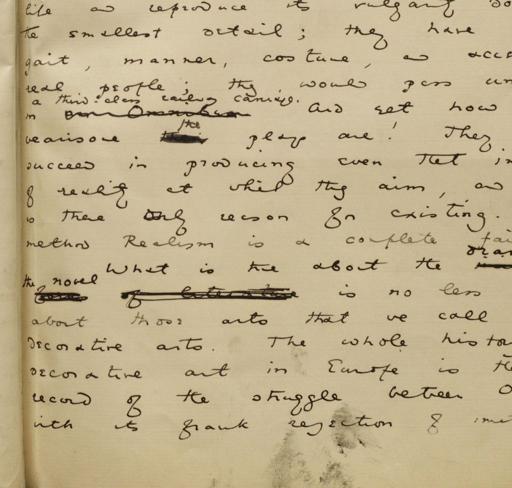 life and reproduce its vulgar
the smallest detail; they have
gait, manner, costume, and
real people; they would pass
a third-class railway carriage.
in And yet how
wearisome the plays are! They
succeed in producing even that
of reality at which they aim, and
is their only reason for existing.
method Realism is a complete
What is true about the drama
the novel is no less
about those arts that we call
decorative arts. The whole
decorative art in Europe is the
record of the struggle between
with its frank rejection of